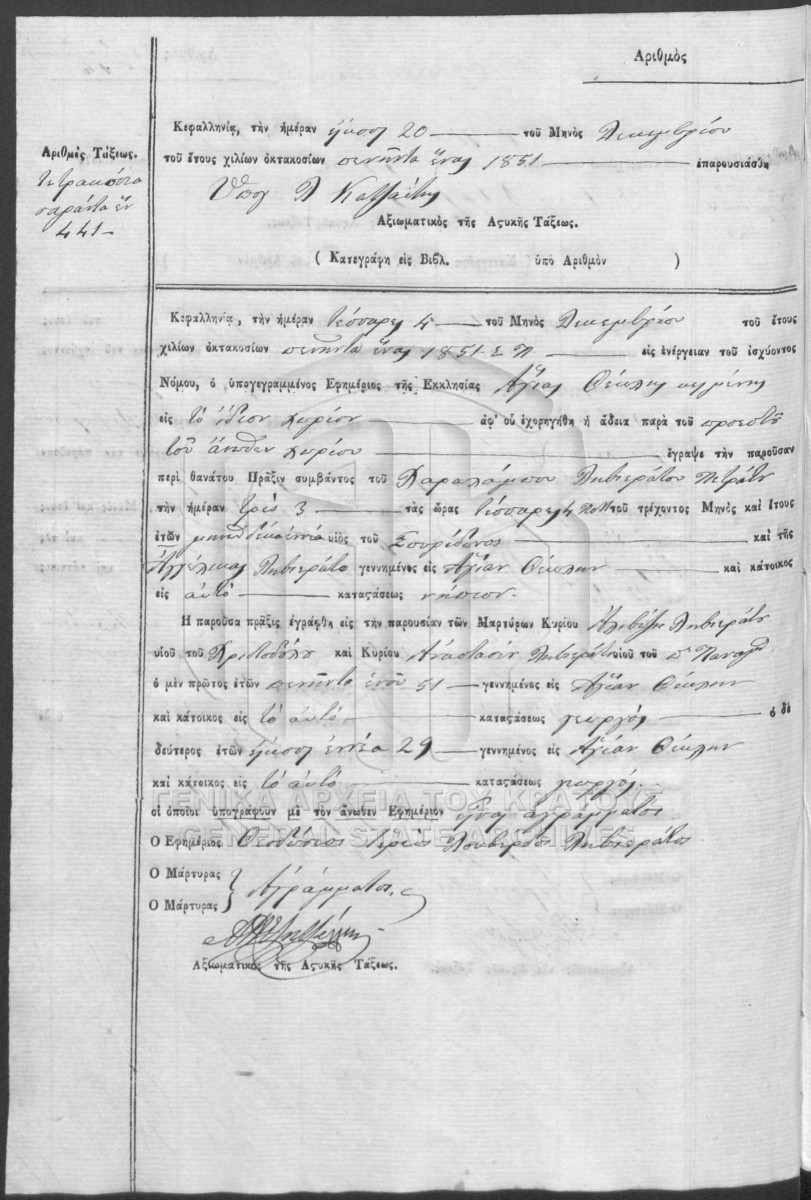 Αριθμὸς
Αριθμὸς Τάξεως.
τετρακόσια
σαράντα ἕν
441—
Κεφαλληνίᾳ, τὴν ἡμέραν ἤκοσι 20 — τοῦ Μηνὸς Δεκεμβρίου
τοῦ ἔτους χιλίων ὀκτακοσίων πενῆντα ἕνας 1851 — ἐπαρουσιάσθη
Αξιωματικὸς τῆς Αςυκῆς Τάξεως.
( Κατεγράφη εἰς Βιβλ. ὑπὸ Αριθμὸν )
Κεφαλληνίᾳ, τὴν ἡμέραν τέσσαρες 4 — τοῦ Μηνὸς Δεκεμβρίου τοῦ ἔτους
χιλίων ὀκτακοσίων πενῆντα ἕνας 1851 Ε Π — εἰς ἐνέργειαν τοῦ ἰσχύοντος
Νόμου, ὁ ὑπογεγραμμένος Εφημέριος τῆς Εκκλησίας Ἁγίας Θέκλης κειμένης
εἰς τὸ ἴδιον χωρίον — ἀφ' οὗ ἐχορηγήθη ἡ ἄδεια παρὰ τοῦ προεστῶ
τοῦ ἄνωθεν χωρίου — ἔγραψε τὴν παροῦσαν
περὶ θανάτου Πρᾶξιν συμβάντος τοῦ Χαραλάμπου Λιβιεράτου
τὴν ἡμέραν τρὶς 3 — τὰς ὥρας τέσσαρες 4 τοῦ τρέχοντος Μηνὸς καὶ ἔτους
ἐτῶν υἱὸς τοῦ Σπυρίδωνος — καὶ τῆς
Ἀγγέλικας Λιβιεράτο γεννημένος εἰς Ἁγίαν Θέκλην — καὶ κάτοικος
εἰς αὐτὸ — καταςάσεως νήπιον.
Η παροῦσα πρᾶξις ἐγράφθη εἰς τὴν παρουσίαν τῶν Μαρτύρων Κυρίου Λιβιεράτου
υἱοῦ τοῦ Χριστοδούλου καὶ Κυρίου Ἀναστασίου Λιβιεράτου υἱοῦ τοῦ
ὁ μὲν πρῶτος ἐτῶν πενῆντα ἑνοῦ 51 — γεννημένος εἰς Ἁγίαν Θέκλην
καὶ κάτοικος εἰς τὸ αὐτὸ — καταςάσεως γεωργὸς — ὁ δὲ
δεύτερος ἐτῶν ἤκοσι ἐννέα 29 — γεννημένος εἰς Ἁγίαν Θέκλην
καὶ κάτοικος εἰς τὸ αὐτὸ — καταςάσεως γεωργὸς.
ΓΕΝΙΚΑ ΑΡΧΕΙΑ ΤΟΥ ΚΡΑΤΟΥΣ
οἱ ὁποῖοι ὑπογράφουν μὲ τὸν ἄνωθεν Εφημέριον ἦναι ἀγράμματοι
GENERAL STATE ARCHIVES
Ο Εφημέριος Θεοδόσιος Ἱερεὺς Λιβιεράτος
Ο Μάρτυρας
Ο Μάρτυρας } Ἀγράμματοι
Αξιωματικὸς τῆς Αςυκῆς Τάξεως.